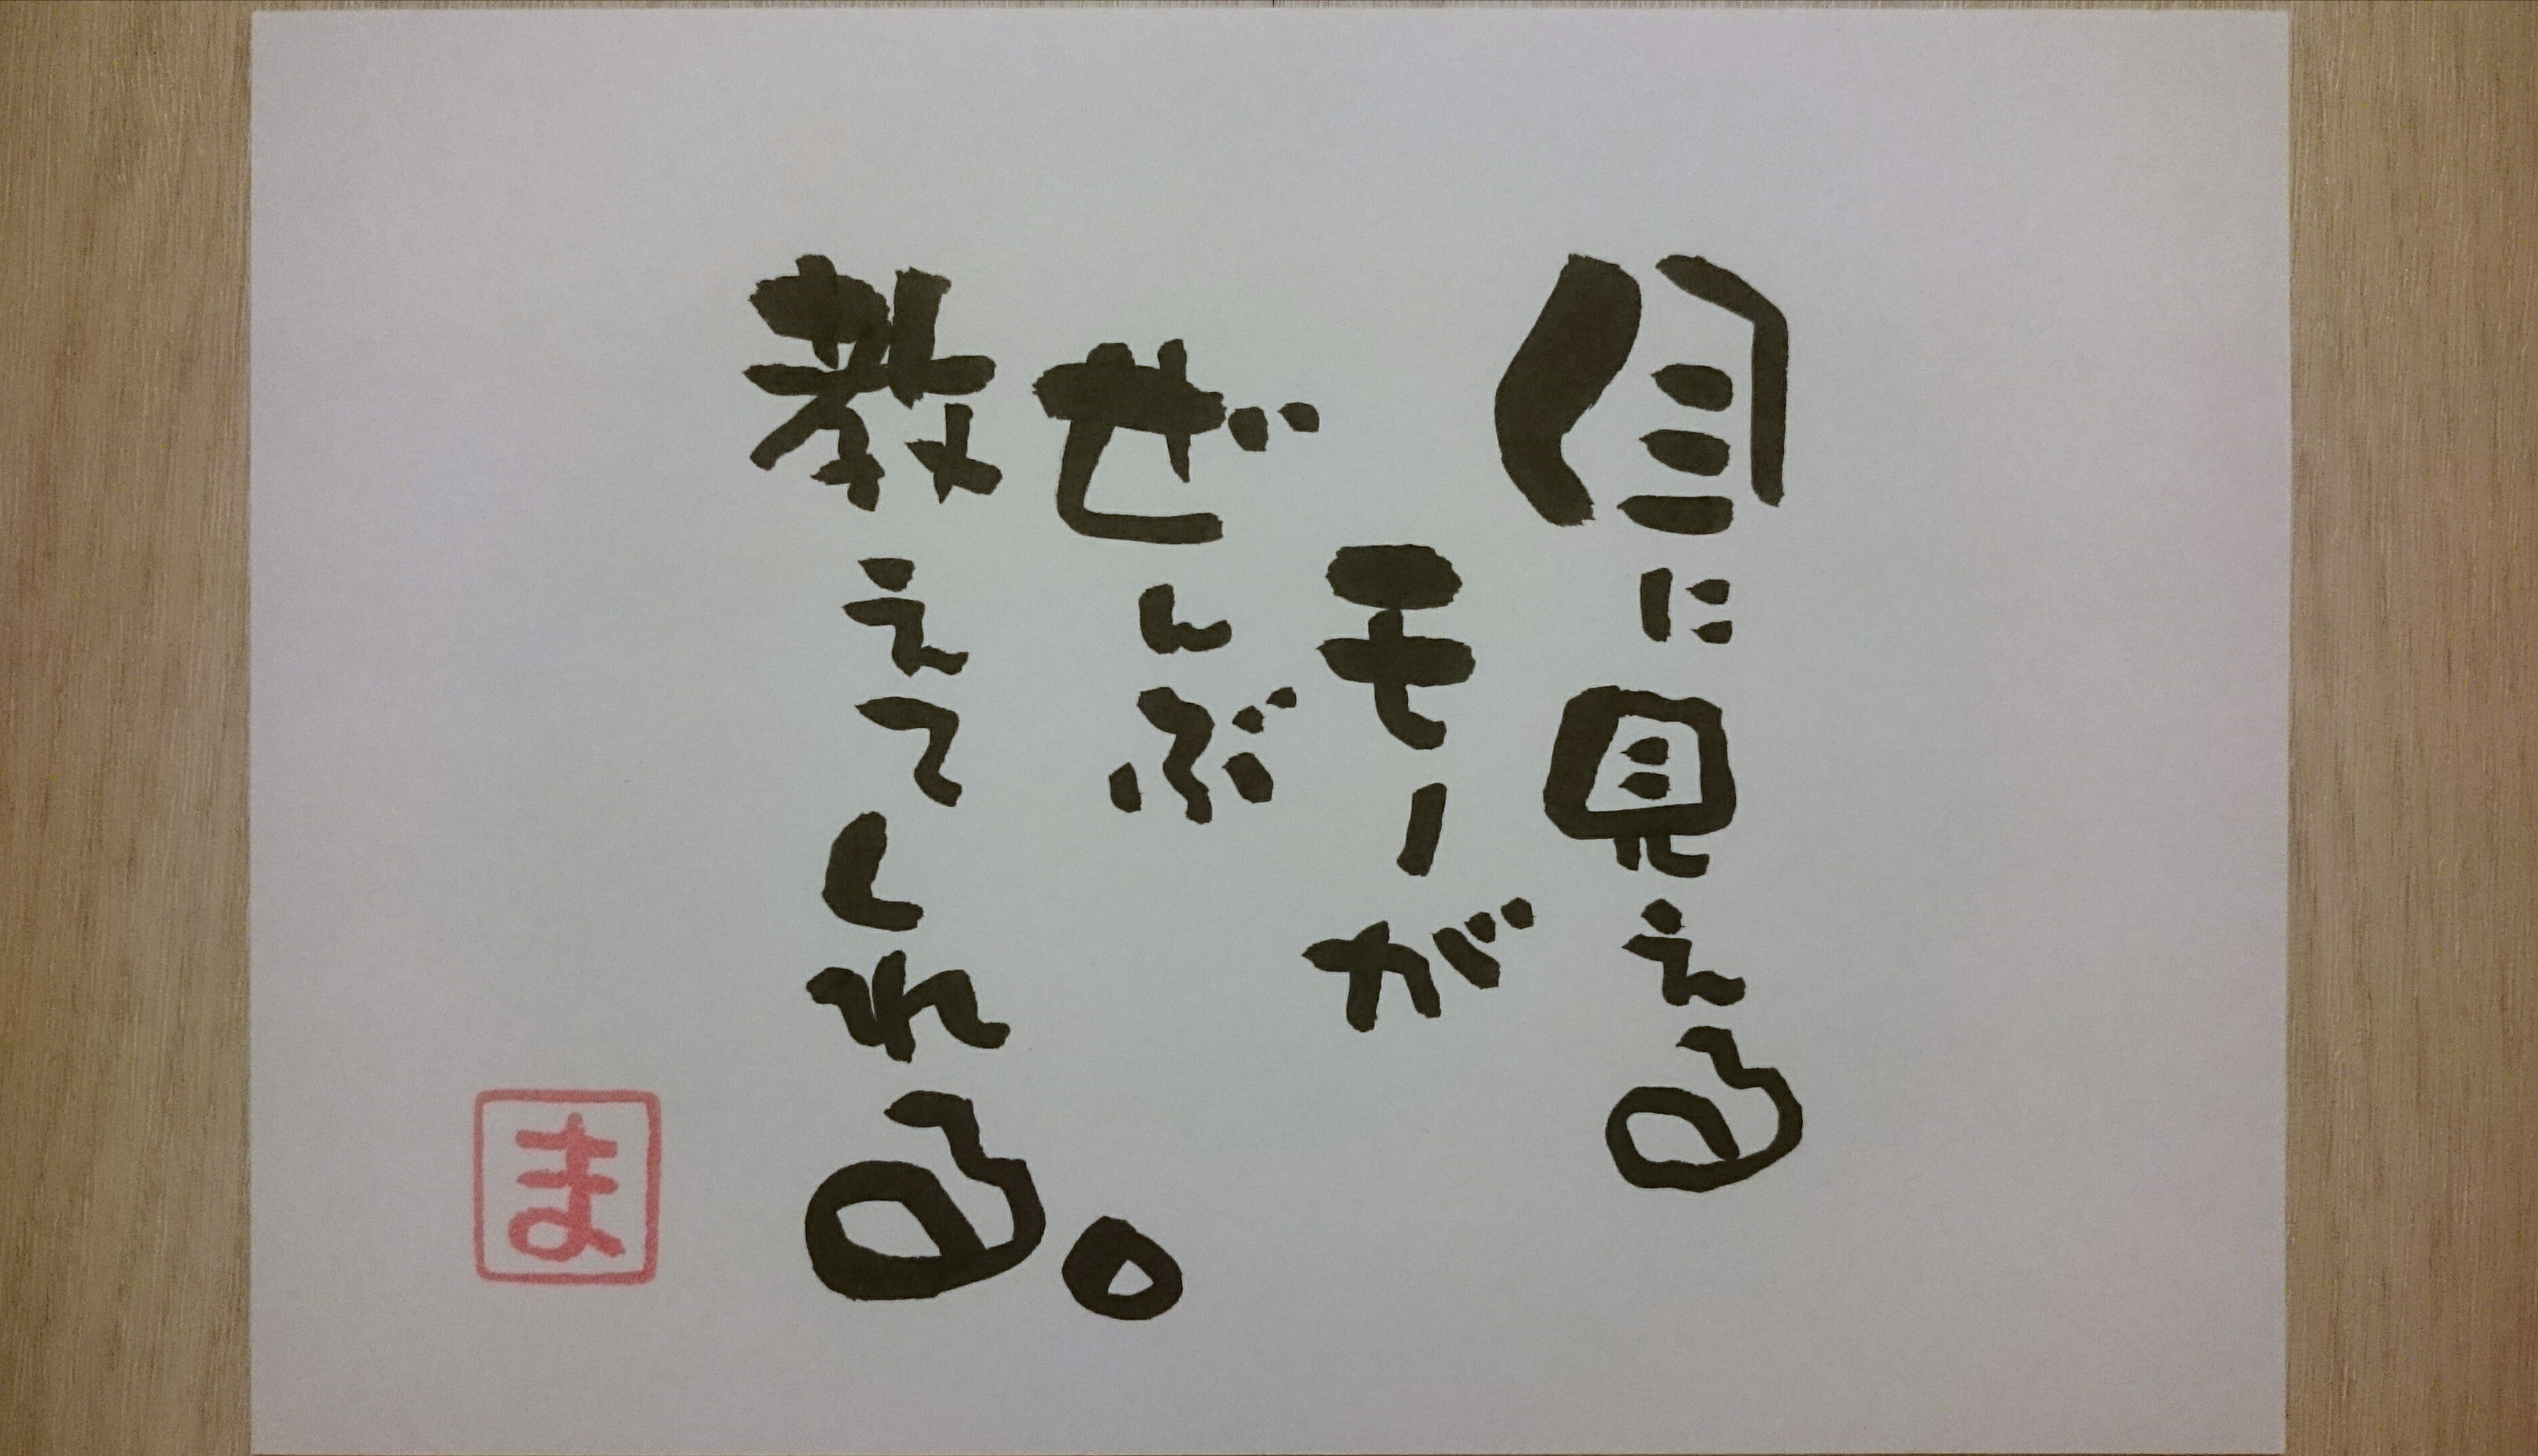 目に見える
モーが
ぜんぶ
教えてくれる。
ま